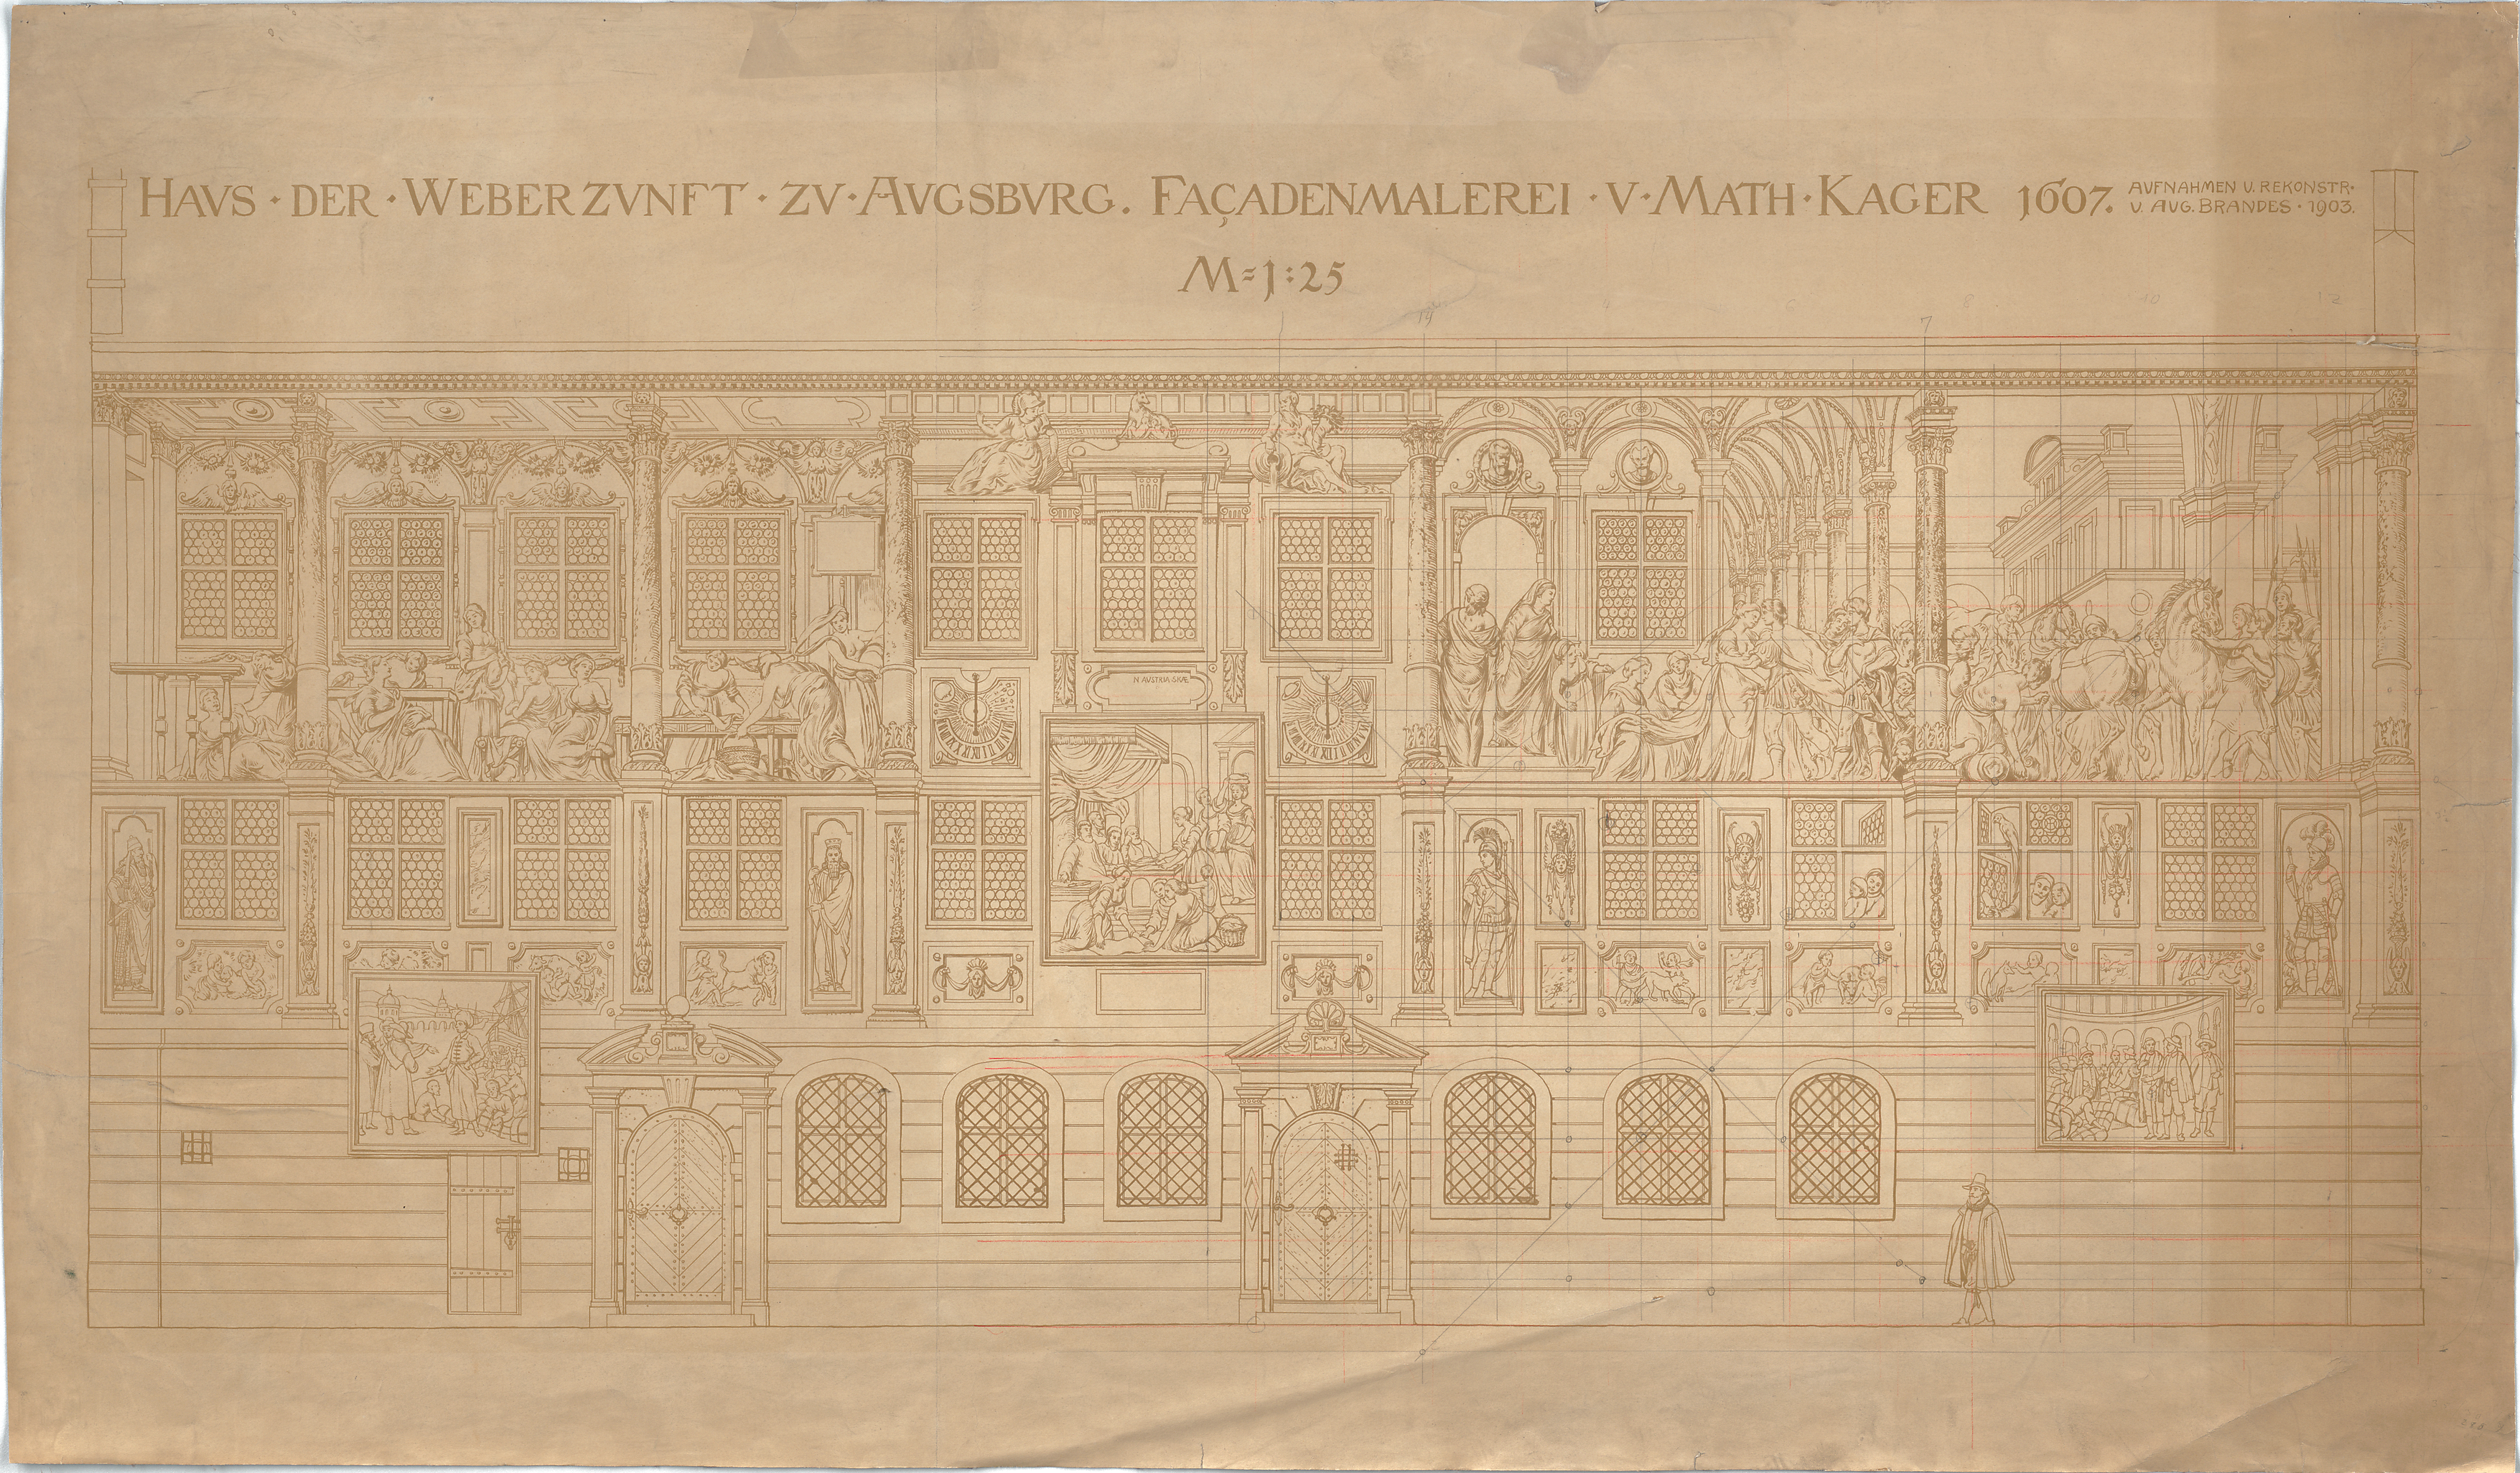 HAVS · DER · WEBERZVNFT · ZV · AVGSBVRG. FAÇADENMALEREI · V · MATH · KAGER 1607.
AUFNAHMEN U. REKONSTR.
V. AUG. BRANDES · 1903.
M=1:25
14
7
8
10
12
N AVSTRIA SKÆ